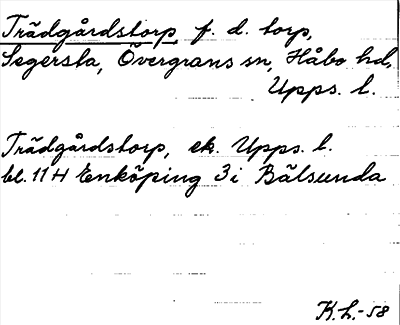 Trädgårdstorp, f. d. torp,
Segersta, Övergrans sn, Håbo hd,
Upps. l.
Trädgårdstorp, ek. Upps. l.
bl. 11 H Enköping 3 i Bälsunda
K.L.-58